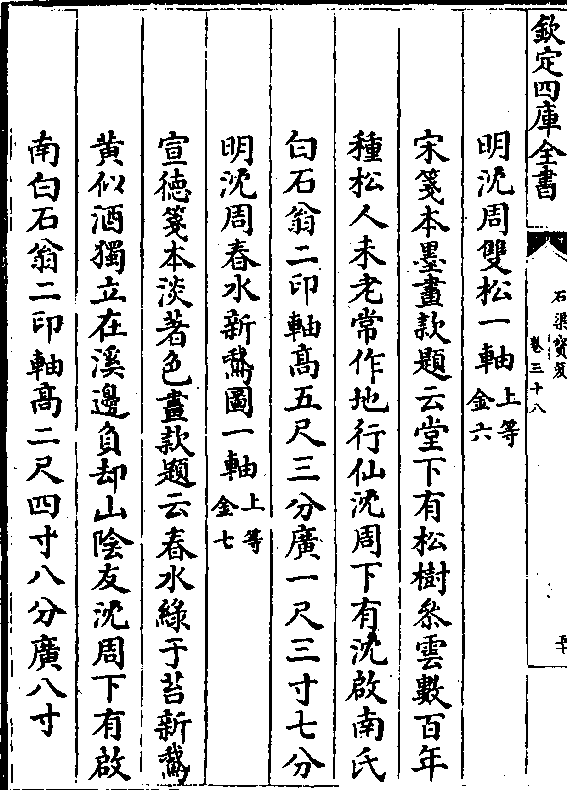 欽定四庫全書
石渠寶笈
卷三十八
明沈周雙松一軸上等金六
宋箋本墨畫款題云堂下有松樹叅雲數百年
種松人未老常作地行仙沈周下有沈啟南氏
白石翁二印軸高五尺三分廣一尺三寸七分
明沈周春水新鵞圖一軸上等金七
宣德箋本淡著色畫款題云春水綠于苔新鵞
黃似酒獨立在溪邊負却山陰友沈周下有啟
南白石翁二印軸高二尺四寸八分廣八寸